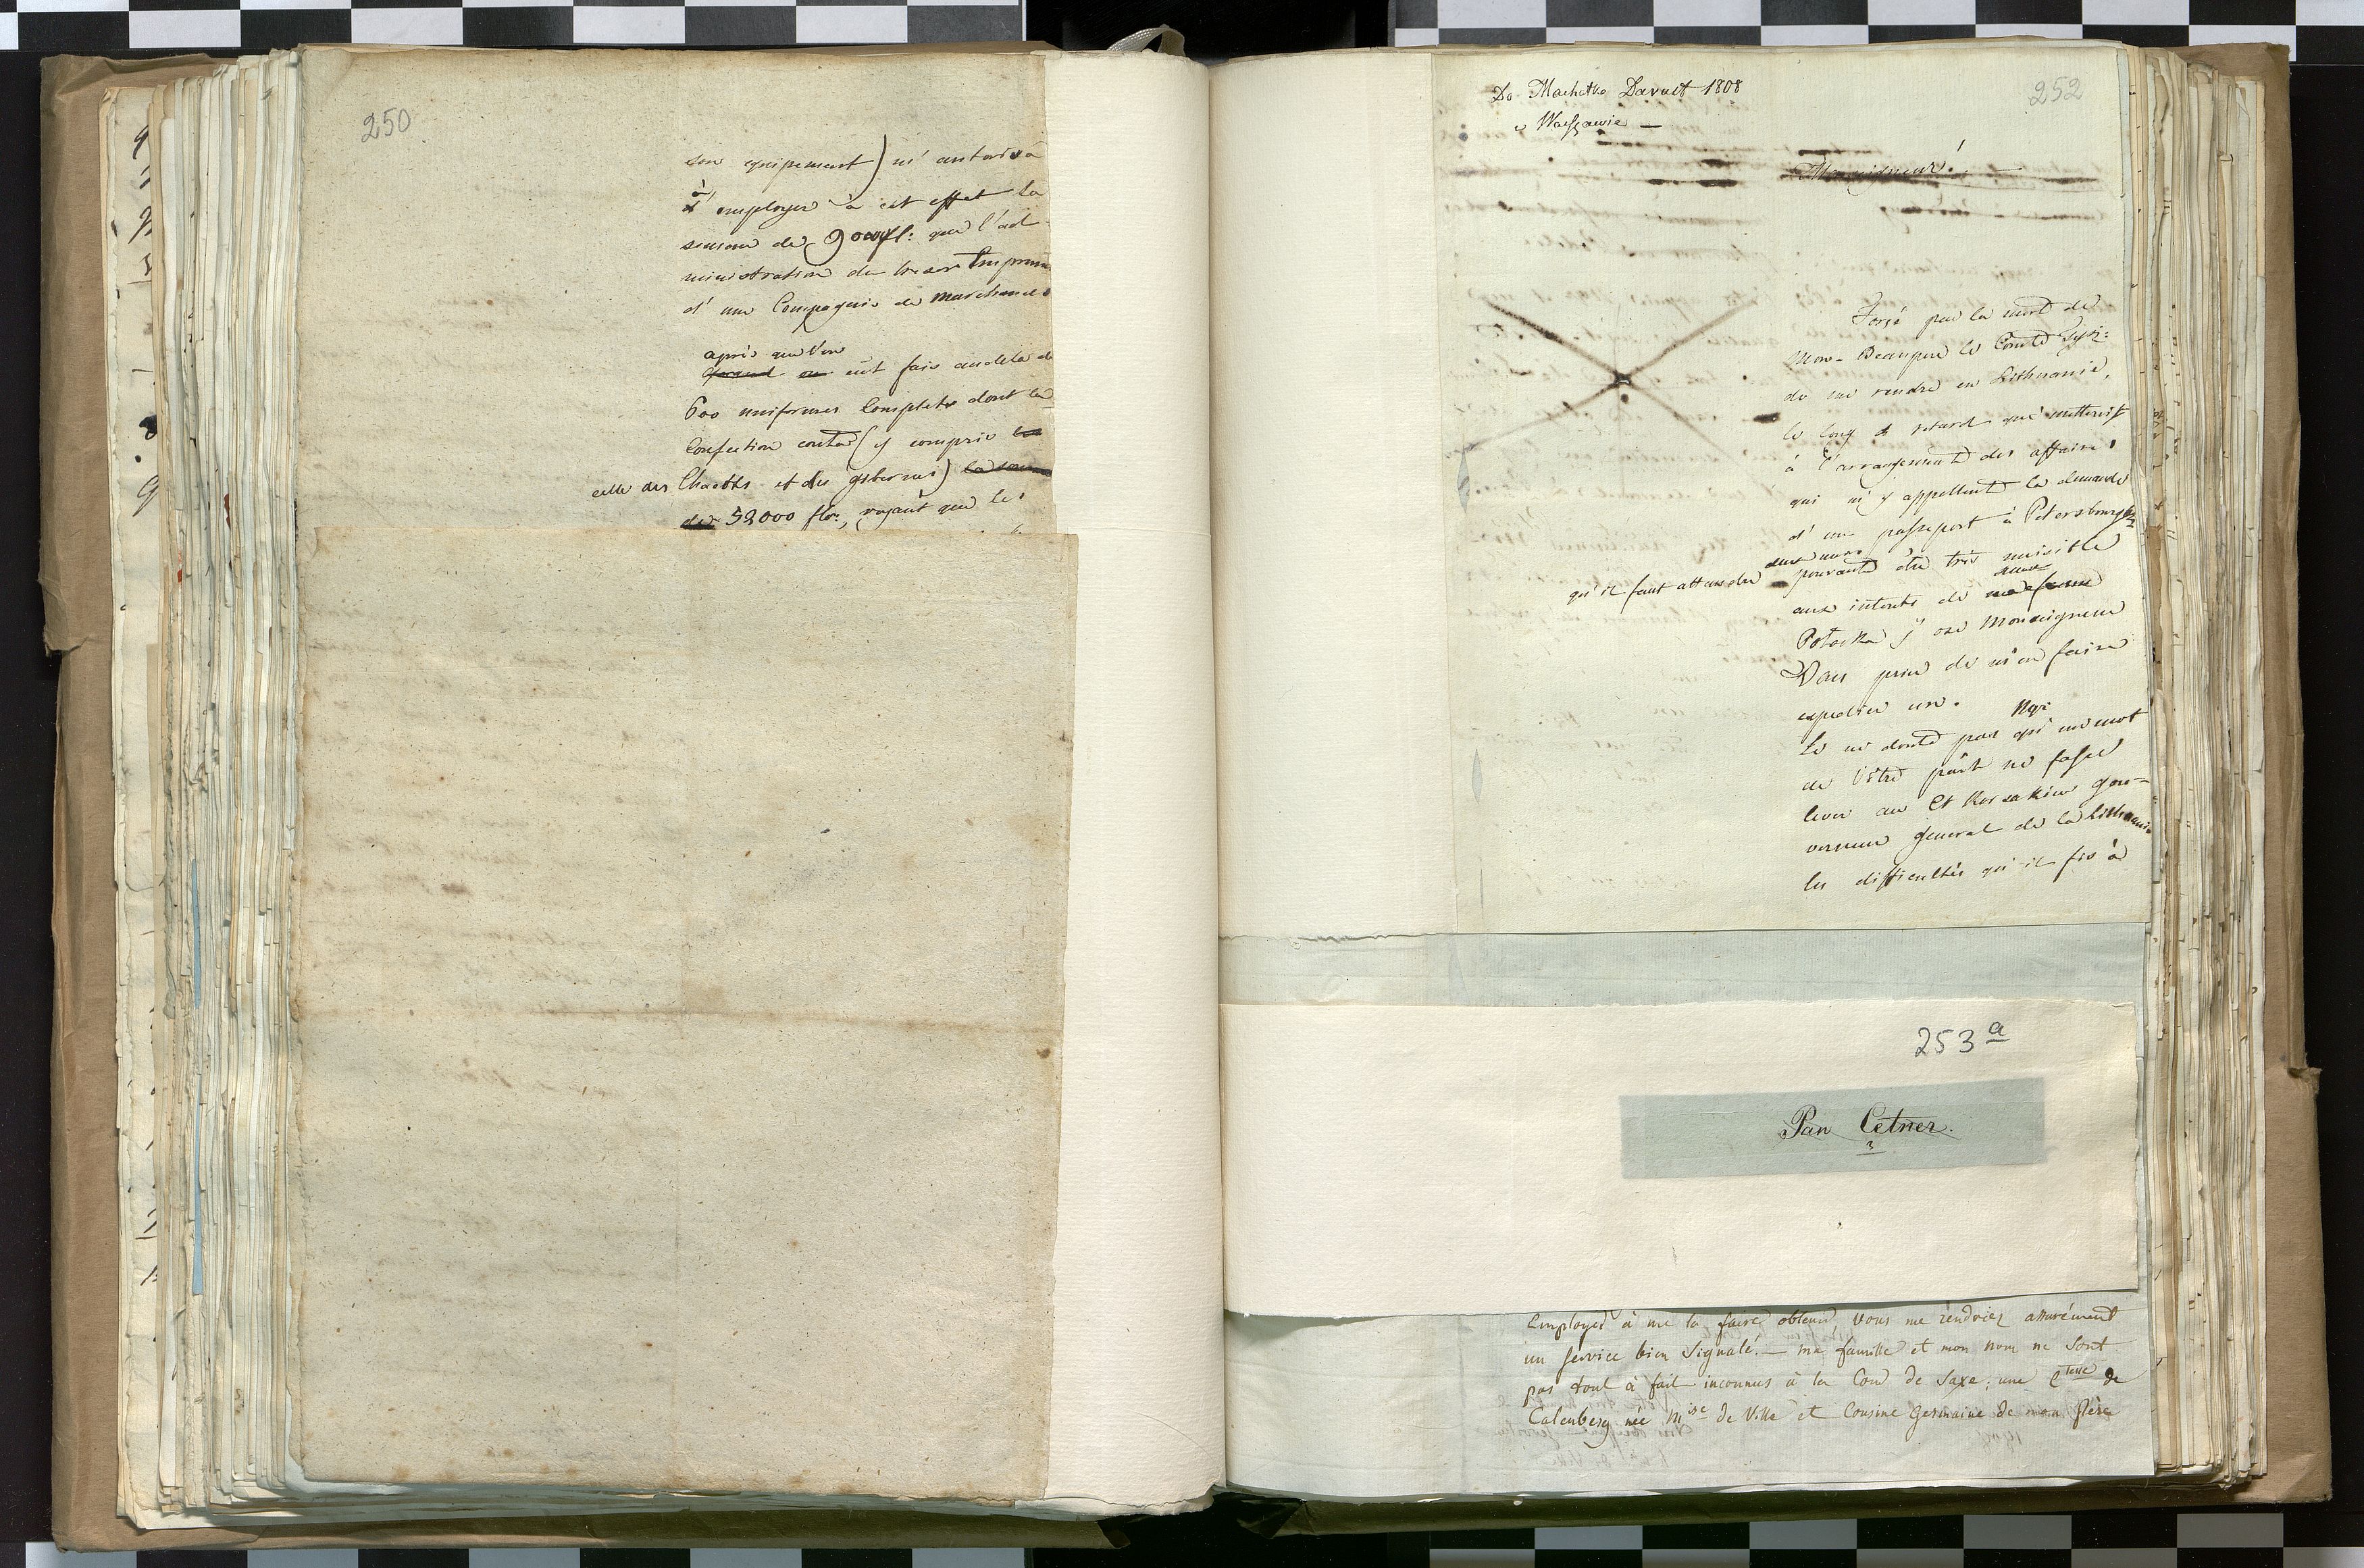 250
son equipement) m'autorisa
à employer à cet effet la
somme de 9000 fl: que l'ad-
ministration du tresor Emprunta
d'une Compagnie de marchands
après que l'on
eut fait audela de
600 uniformes Complets dont la
Confection couta (y compris
celle des Chacots et des gibernes) la somme
de 52000 flor:, voyant que les
252
Do Marchatka Davout 1808
w Warszawie —
Monseigneur!
Forcé par la mort de
mon Beaupere le Comte
de me rendre en Lithuanie,
le long retard que mettroit
à l'arrangement des affaires
qui m'y appellent la demande
d'un passeport à Petersbourg
qu'il faut attendre pouvant être très nuisible
aux interets de
Potocka j'ose Monseigneur
Vous prier de m'en faire
expedier un.
Je ne doute pas qu'un mot
de Votre part ne fasse
lever au Korsakow gou-
verneur general de la Lithuanie
les difficultés qu'il
253 a
Pan Cetner.
3
Employer à me la faire obtenir, vous me rendriez assurément
un service bien signalé. — ma famille et mon nom ne sont
pas tout à fait inconnus à la Cour de Saxe; une Ctesse de
Calenberg née Mise de Ville et Cousine Germaine de mon Père